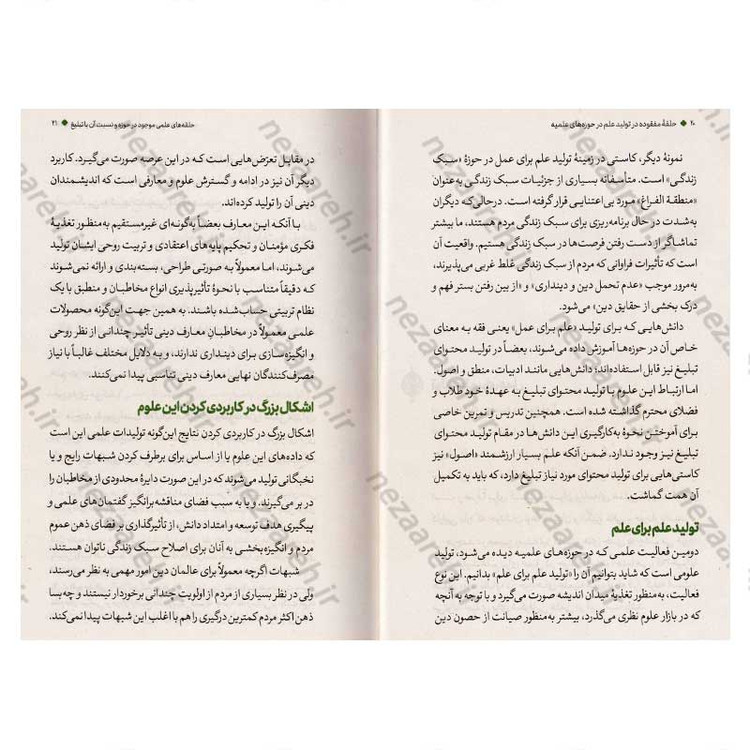 ۲۰ ◆ حلقهٔ مفقوده در تولید علم در حوزه‌های علمیه
نمونهٔ دیگر، کاستی در زمینهٔ تولید علم برای عمل در حوزهٔ «سبک
زندگی» است. متأسفانه بسیاری از جزئیات سبک زندگی به‌عنوان
«منطقة الفراغ» مورد بی‌اعتنایی قرار گرفته است. درحالی‌که دیگران
به‌شدت در حال برنامه‌ریزی برای سبک زندگی مردم هستند، ما بیشتر
تماشاگر از دست رفتن فرصت‌ها در سبک زندگی هستیم. واقعیت آن
است که تأثیرات فراوانی که مردم از سبک زندگی غلط غربی می‌پذیرند،
به‌مرور موجب «عدم تحمل دین و دینداری» و «از بین رفتن بستر فهم و
درک بخشی از حقایق دین» می‌شود.
دانش‌هایی که برای تولید «علم برای عمل» یعنی فقه به معنای
خاص آن در حوزه‌ها آموزش داده می‌شوند، بعضاً در تولید محتوای
تبلیغ نیز قابل استفاده‌اند؛ دانش‌هایی مانند ادبیات، منطق و اصول.
اما ارتباط این علوم با تولید محتوای تبلیغ به عهدهٔ خود طلاب و
فضلای محترم گذاشته شده است. همچنین تدریس و تمرین خاصی
برای آموختن نحوهٔ به‌کارگیری این دانش‌ها در مقام تولید محتوای
تبلیغ نیز وجود ندارد. ضمن آنکه علم بسیار ارزشمند «اصول» نیز
کاستی‌هایی برای تولید محتوای مورد نیاز تبلیغ دارد، که باید به تکمیل
آن همت گماشت.
تولید علم برای علم
دومین فعالیت علمی که در حوزه‌های علمیه دیده می‌شود، تولید
علومی است که شاید بتوانیم آن را «تولید علم برای علم» بدانیم. این نوع
فعالیت، به‌منظور تغذیهٔ میدان اندیشه صورت می‌گیرد و با توجه به آنچه
که در بازار علوم نظری می‌گذرد، بیشتر به‌منظور صیانت از حصون دین
حلقه‌های علمی موجود در حوزه و نسبت آن با تبلیغ ◆ ۲۱
در مقابل تعرّض‌هایی است که در این عرصه صورت می‌گیرد. کاربرد
دیگر آن نیز در ادامه و گسترش علوم و معارفی است که اندیشمندان
دینی آن را تولید کرده‌اند.
با آنکه این معارف بعضاً به‌گونه‌ای غیرمستقیم به‌منظور تغذیهٔ
فکری مؤمنان و تحکیم پایه‌های اعتقادی و تربیت روحی ایشان تولید
می‌شوند، اما معمولاً به صورتی طراحی، بسته‌بندی و ارائه نمی‌شوند
که دقیقاً متناسب با نحوهٔ تأثیرپذیری انواع مخاطبان و منطبق با یک
نظام تربیتی حساب‌شده باشند. به همین جهت این‌گونه محصولات
علمی معمولاً در مخاطبانِ معارف دینی تأثیر چندانی از نظر روحی
و انگیزه‌سازی برای دینداری ندارند، و به دلایل مختلف غالباً با نیاز
مصرف‌کنندگان نهایی معارف دینی تناسبی پیدا نمی‌کنند.
اشکال بزرگ در کاربردی کردن این علوم
اشکال بزرگ در کاربردی کردن نتایج این‌گونه تولیدات علمی این است
که داده‌های این علوم یا از اساس برای برطرف کردن شبهات رایج و یا
نخبگانی تولید می‌شوند که در این صورت دایرهٔ محدودی از مخاطبان را
در بر می‌گیرند. و یا به سبب فضای مناقشه‌برانگیز گفتمان‌های علمی و
پیگیری هدف توسعه و امتداد دانش، از تأثیرگذاری بر فضای ذهن عموم
مردم و انگیزه‌بخشی به آنان برای اصلاح سبک زندگی ناتوان هستند.
شبهات اگرچه معمولاً برای عالمان دین امور مهمی به نظر می‌رسند،
ولی در نظر بسیاری از مردم از اولویت چندانی برخوردار نیستند و چه‌بسا
ذهن اکثر مردم کمترین درگیری را هم با اغلب این شبهات پیدا نمی‌کند.
nezaareh.ir